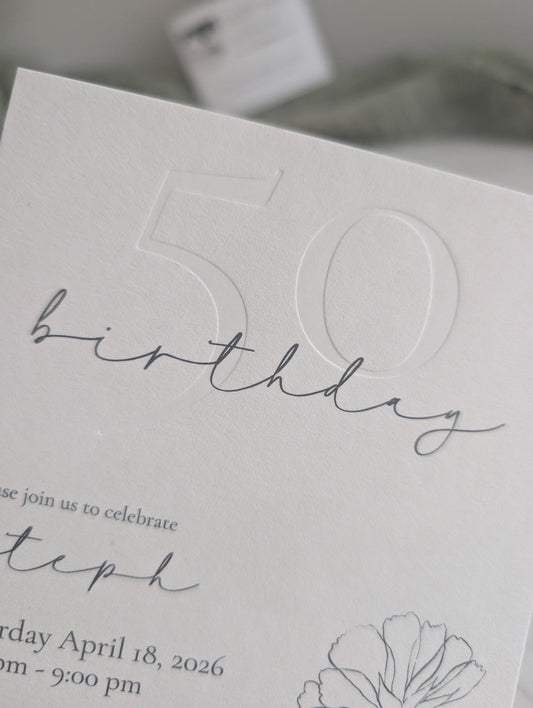 50
birthday
se join us to celebrate
teph
rday April 18, 2026
pm - 9:00 pm